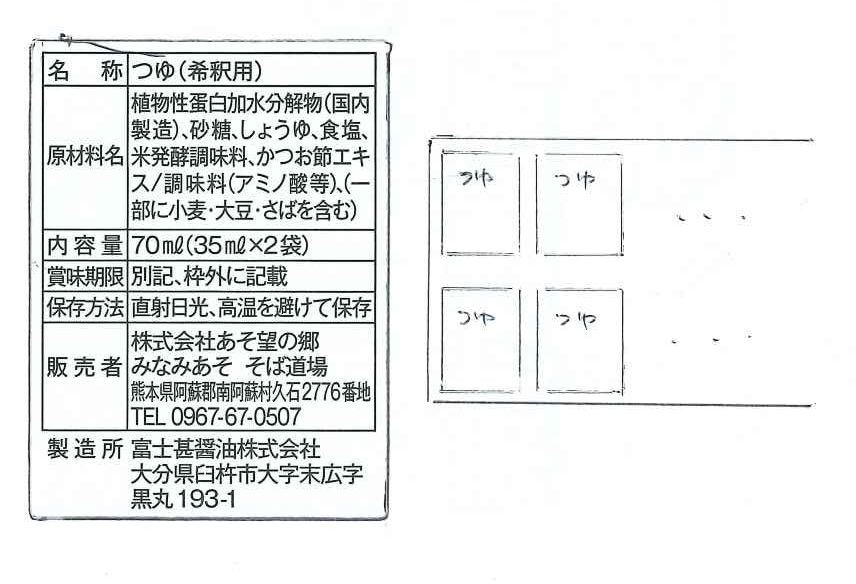 名称 つゆ(希釈用)
原材料名 植物性蛋白加水分解物(国内
製造)、砂糖、しょうゆ、食塩、
米発酵調味料、かつお節エキ
ス/調味料(アミノ酸等)、(一
部に小麦・大豆・さばを含む)
内容量 70㎖(35㎖×2袋)
賞味期限 別記、枠外に記載
保存方法 直射日光、高温を避けて保存
販売者 株式会社あそ望の郷
みなみあそ そば道場
熊本県阿蘇郡南阿蘇村久石2776番地
TEL 0967-67-0507
製造所 富士甚醤油株式会社
大分県臼杵市大字末広字
黒丸193-1
つゆ つゆ ・・・
つゆ つゆ ・・・